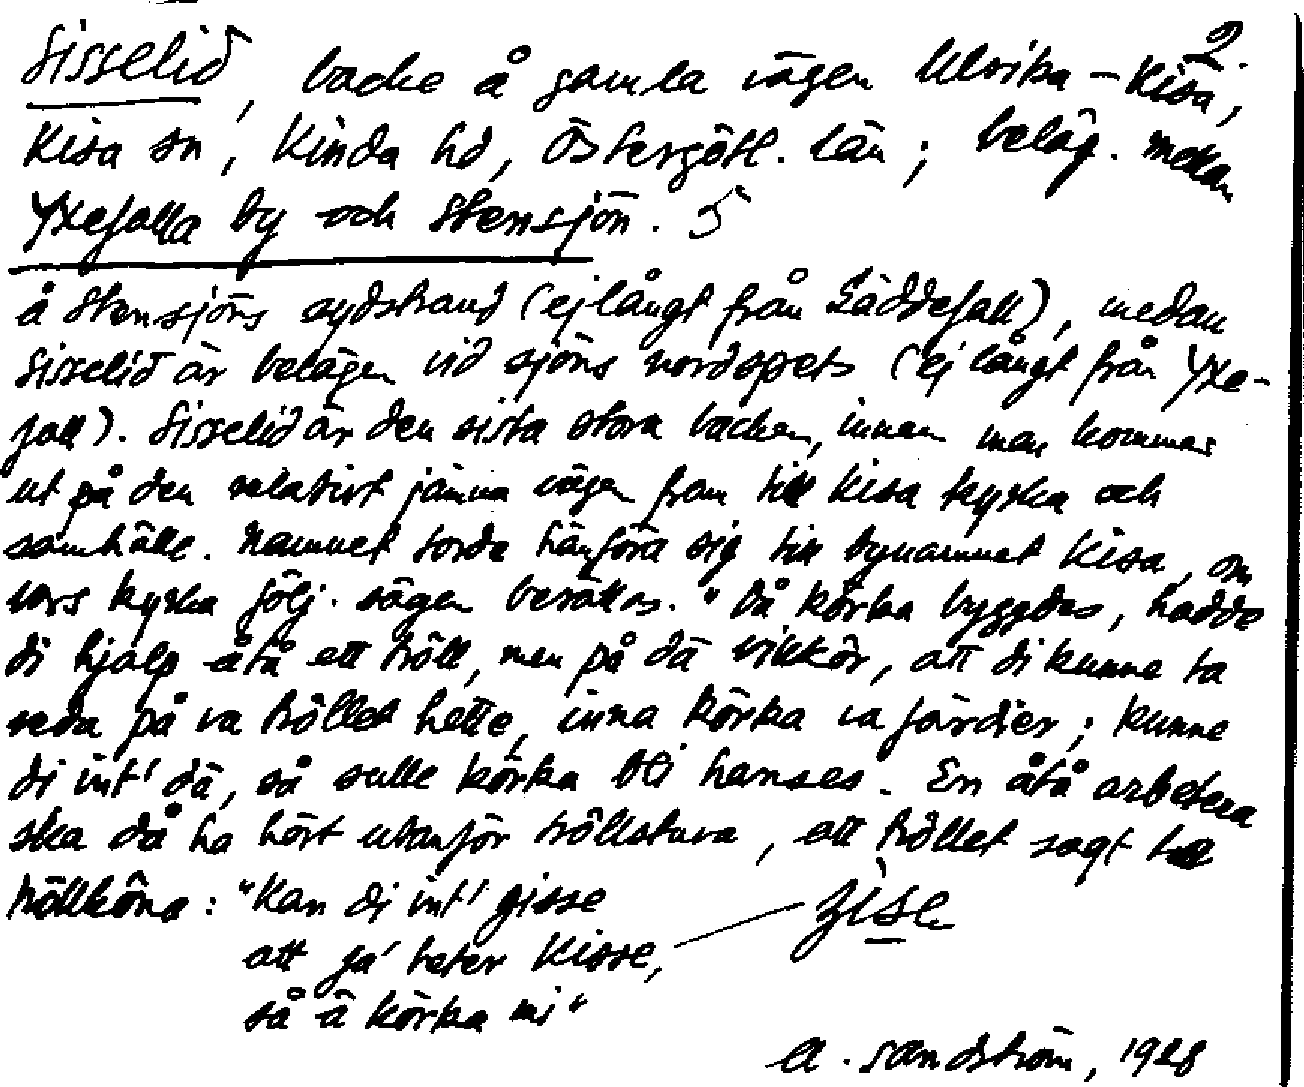 2.
Sisselid, backe å gamla vägen Ulrika – Kisa,
Kisa sn, Kinda hd, Östergötl. län; beläg. mellan
Yxefalla by och Stensjön. 5
å Stensjöns sydstrand (ej långt från Gäddefall), medan
Sisselid är belägen vid sjöns nordspets (ej långt från Yxe-
fall). Sisselid är den sista stora backen, innan man kommer
ut på den relativt jämna vägen fram till Kisa kyrka och
samhälle. Namnet torde hänföra sig till bynamnet Kisa, om
vars kyrka följ. sägen berättas. "Då körka byggdes, hadde
di hjälp åtå ett tröll, men på dä villkôr, att di kunne ta
reda på va tröllet hette, inna körka va färdier; kunne
di int' dä, så sulle körka bli hanses. En åtå arbetera
ska då ha hört utanför tröllstuva, att tröllet sagt te
tröllköna: "Kan di int' gisse
att ja' heter Kisse,
så ä körka mi"
A. Sandström, 1928